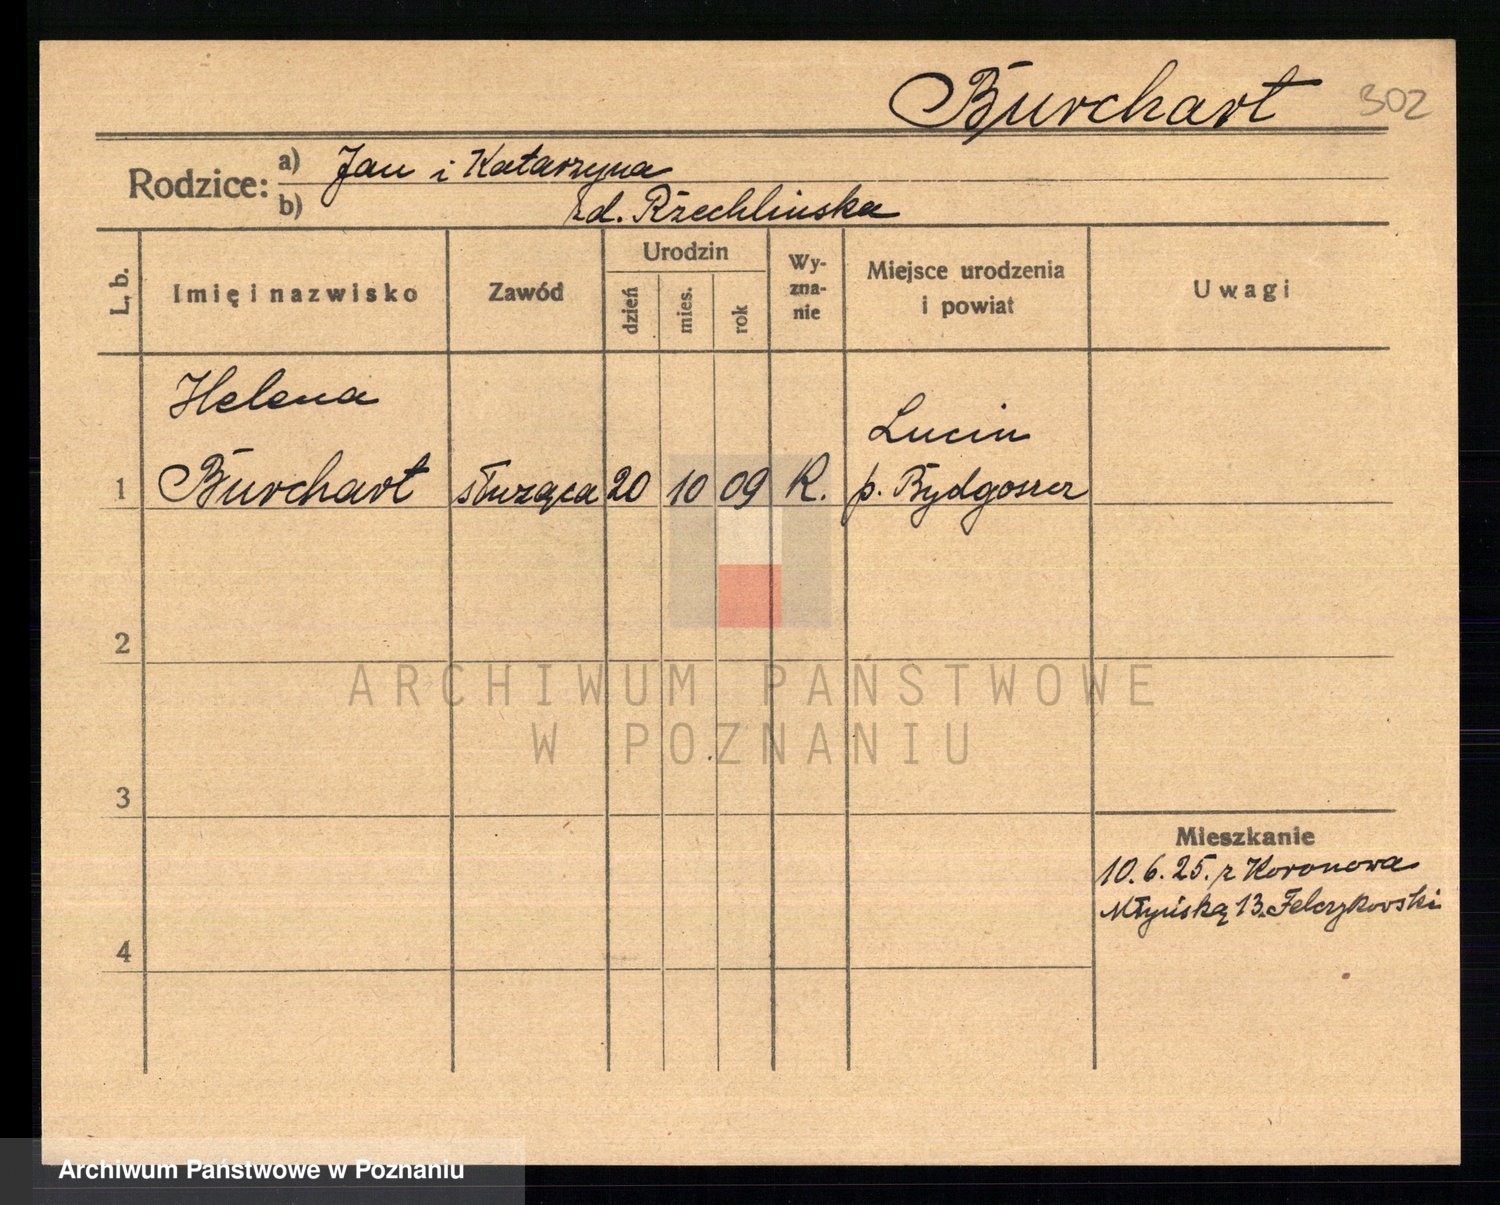 Burchart 302
Rodzice: a) Jan i Katarzyna
b) zd. Rzechlinska
L. b.
Imię i nazwisko
Zawód
Urodzin
dzień
mies.
rok
Wy-
zna-
nie
Miejsce urodzenia
i powiat
Uwagi
Helena
Lucin
1 Burchart służąca 20 10 09 R. p. Bydgoszcz
2
ARCHIWUM PAŃSTWOWE
W POZNANIU
3
Mieszkanie
10.6.25. z Koronowa
Młyńska 13. Felczykowski
4
Archiwum Państwowe w Poznaniu